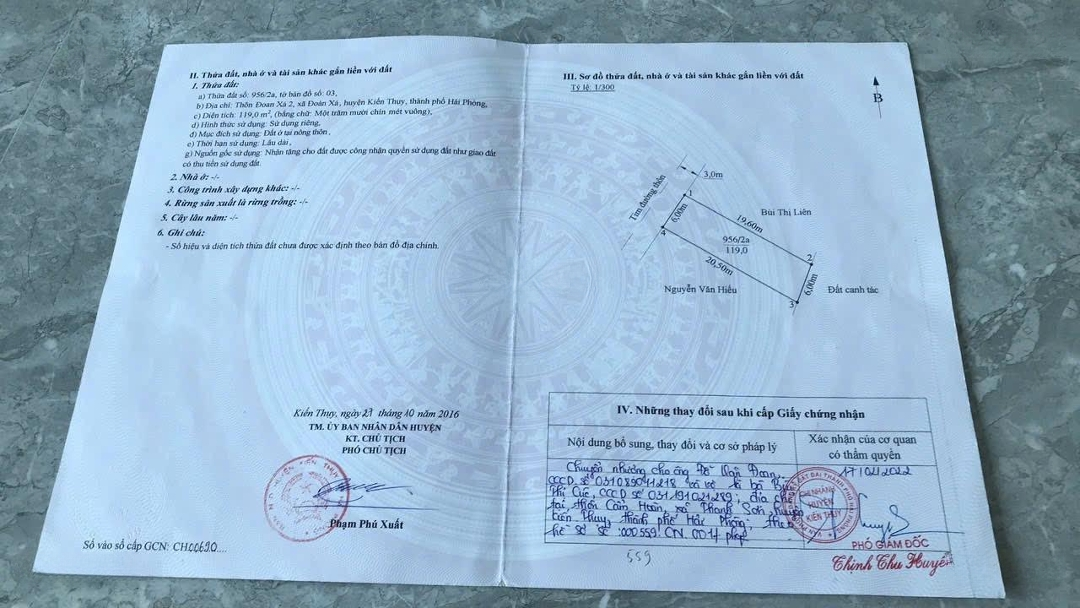 II. Thửa đất, nhà ở và tài sản khác gắn liền với đất
1. Thửa đất:
a) Thửa đất số: 956/2a, tờ bản đồ số: 03,
b) Địa chỉ: Thôn Đoan Xá 2, xã Đoàn Xá, huyện Kiến Thụy, thành phố Hải Phòng,
c) Diện tích: 119,0 m², (bằng chữ: Một trăm mười chín mét vuông),
d) Hình thức sử dụng: Sử dụng riêng,
đ) Mục đích sử dụng: Đất ở tại nông thôn,
e) Thời hạn sử dụng: Lâu dài,
g) Nguồn gốc sử dụng: Nhận tặng cho đất được công nhận quyền sử dụng đất như giao đất
có thu tiền sử dụng đất.
2. Nhà ở: -/-
3. Công trình xây dựng khác: -/-
4. Rừng sản xuất là rừng trồng: -/-
5. Cây lâu năm: -/-
6. Ghi chú:
- Số hiệu và diện tích thửa đất chưa được xác định theo bản đồ địa chính.
Kiến Thụy, ngày 27 tháng 10 năm 2016
TM. ỦY BAN NHÂN DÂN HUYỆN
KT. CHỦ TỊCH
PHÓ CHỦ TỊCH
Phạm Phú Xuất
Số vào sổ cấp GCN: CH00690....
III. Sơ đồ thửa đất, nhà ở và tài sản khác gắn liền với đất
Tỷ lệ: 1/300
B
3,0m
Tim đường thôn
1
6,00m
19,60m
Bùi Thị Liên
4
956/2a
119,0
2
20,50m
6,00m
Nguyễn Văn Hiếu
3
Đất canh tác
IV. Những thay đổi sau khi cấp Giấy chứng nhận
Nội dung bổ sung, thay đổi và cơ sở pháp lý
Xác nhận của cơ quan
có thẩm quyền
Chuyển nhượng cho ông Đỗ Văn Đoan,
CCCD số 031089011218 và vợ là bà Bùi
Thị Cúc, CCCD số 031191021289; địa chỉ
tại thôn Cẩm Hoàn, xã Thanh Sơn, huyện
Kiến Thụy, thành phố Hải Phòng; theo
hồ sơ số: 000559.CN.001
17/02/2022
CHI NHÁNH
HUYỆN
KIẾN THỤY
PHÓ GIÁM ĐỐC
Thịnh Thu Huyền
559